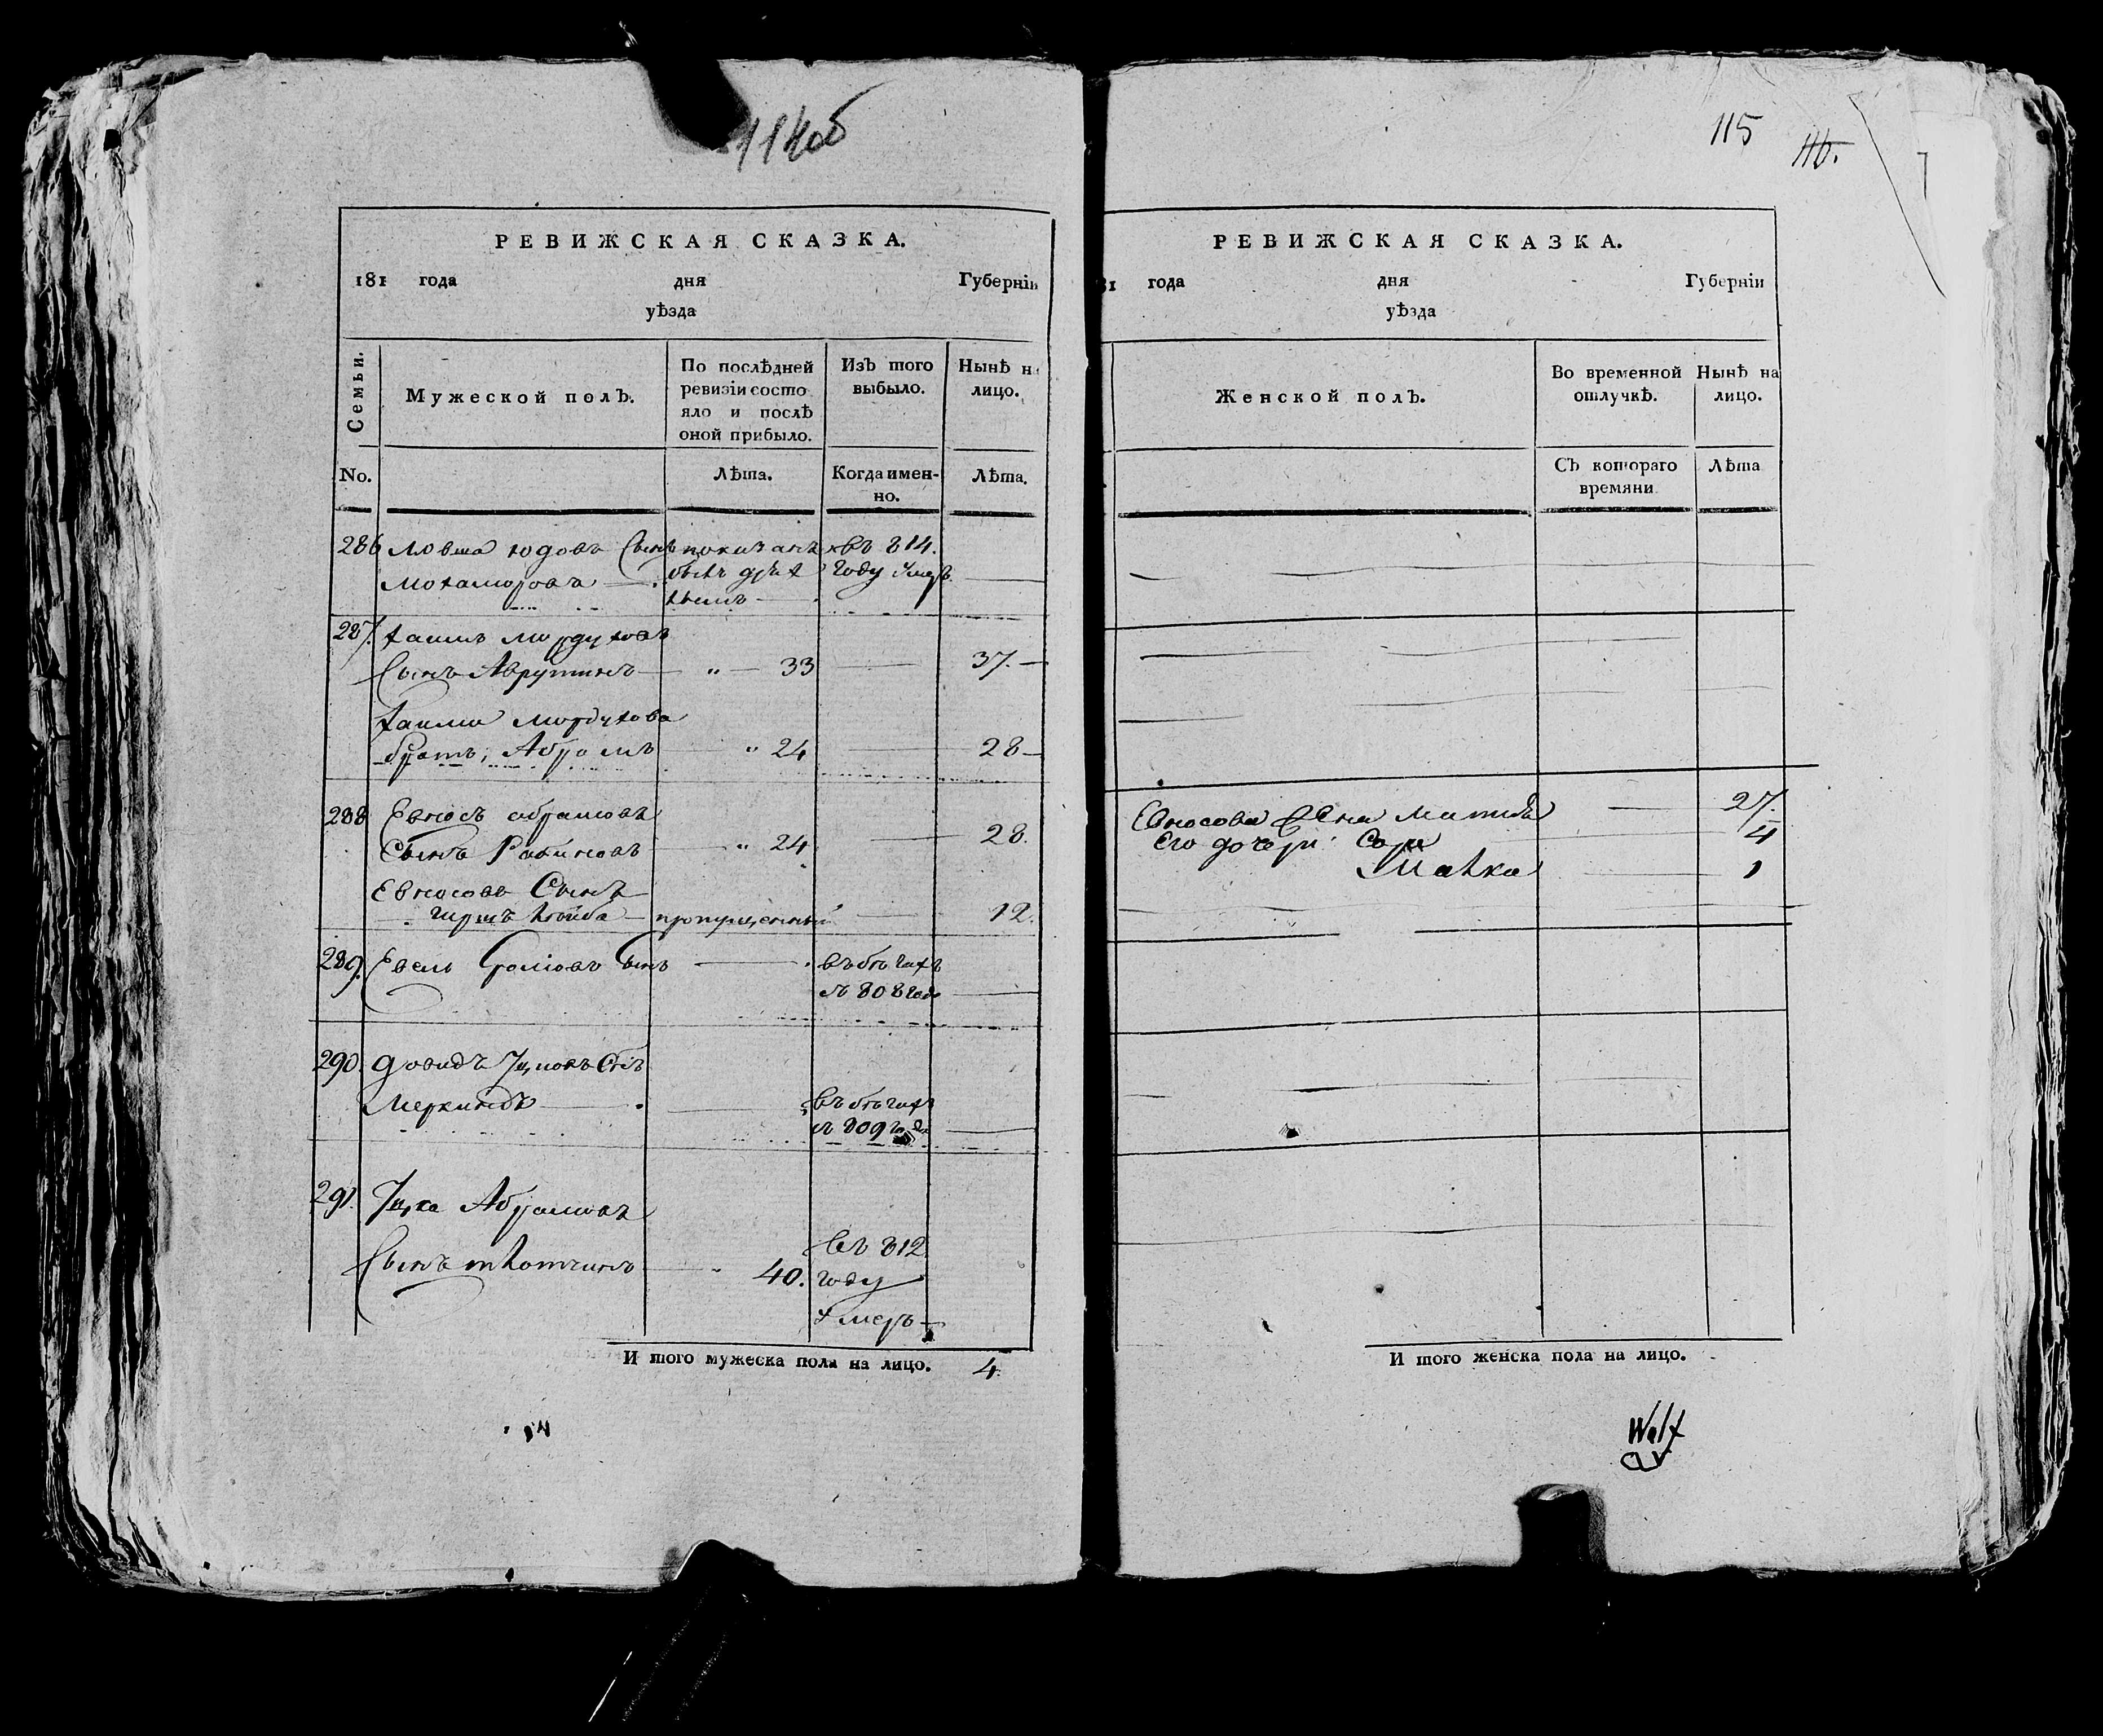 114об
РЕВИЖСКАЯ СКАЗКА.
181 года дня Губерніи
уѣзда
Семьи.
Мужеской полъ.
По послѣдней
ревизіи состо
яло и послѣ
оной прибыло.
Изъ того
выбыло.
Нынѣ на
лицо.
No.
Лѣта.
Когда имен-
но.
Лѣта.
286 Мовша юдовъ Сынъ показанъ въ 814.
году умеръ
287. хаимъ мордуховъ
Сынъ Аврутинъ — " — 33 — 37. —
хаима мордухова
братъ, Абрамъ " 24 — 28 —
288 Евносъ абрамовъ
Сынъ Рабиновъ " 24 — 28.
Евносовъ Сынъ
гиршъ лейба — пропущенный — 12.
289. Евель Сынъ — въ бѣгахъ
съ 808 года —
290. довидъ Ицковъ Сынъ
Меркинъ — въ бѣгахъ
съ 809 года —
291. Ицка Абрамовъ
въ 812
Сынъ 40. году
умеръ —
И того мужеска пола на лицо. 4.
115
116.
РЕВИЖСКАЯ СКАЗКА.
81 года дня Губерніи
уѣзда
Женской полъ.
Во временной
отлучкѣ.
Нынѣ на
лицо.
Съ котораго
времяни
Лѣта
Евносова жена 27.
Его дочери Сора 4
Малка 1
И того женска пола на лицо.